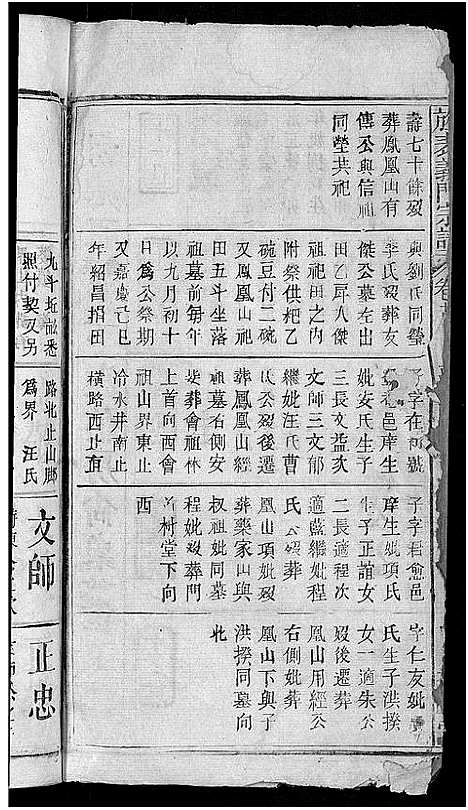 旌表義門宗譜 卷
壽七十餘歿
葬鳳凰山有
傳公與信祖
同塋共祀
與劉氏同塋
李氏歿葬友
傑公墓左出
田乙邱入傑
祖祀田之內
附祭供粑乙
碗豆付二碗
又鳳凰山祀
田五斗坐落
祖墓前每年
以九月初十
日爲公祭期
又嘉慶己巳
年紹昌招田
子字在 號
邑庠生
妣安氏生子
三長文益次
文師三文郁
繼妣汪氏曹
氏公歿後遷
葬鳳凰山經
祖墓右側安
歿葬會祖林
上首向西會
祖山界東止
冷水井南止
橫路西止直
子字君愈邑
庠生妣項氏
生子正誼女
二長適程次
適藍繼妣程
氏公歿葬
凰山項妣歿
葬藥家山與
叔祖妣同墓
程妣歿葬門
前樹堂下向
西
字仁友妣
氏生子洪揆
女一適朱公
歿後遷葬
凰山用經公
右側妣葬
凰山下與子
洪揆同墓向
北
九斗坵畝悉
照付契又另
路北止山脚
爲界 汪氏
文師
正忠